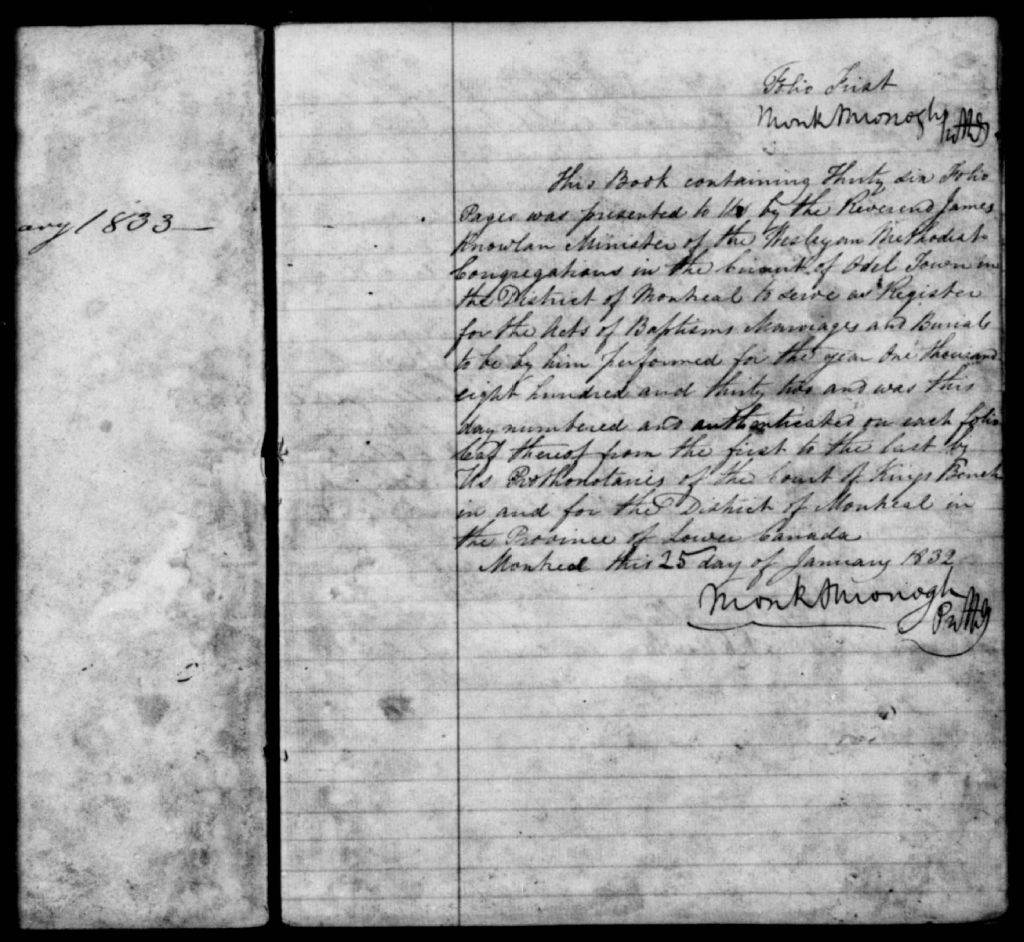 ary 1833
Folio First
Monk & Morrogh PrthG
This Book containing Thirty six Folio
Pages was presented to Us by the Reverend James
Knowlan Minister of the Wesleyan Methodist
Congregations in the Circuit of Odel Town in
the District of Montreal to serve as Register
for the Acts of Baptisms Marriages and Burials
to be by him performed for the year One thousand
eight hundred and thirty two and was this
day numbered and authenticated on each folio
leaf thereof from the first to the last by
Us Prothonotaries of the Court of Kings Bench
in and for the District of Montreal in
the Province of Lower Canada
Montreal this 25 day of January 1832
Monk & Morrogh